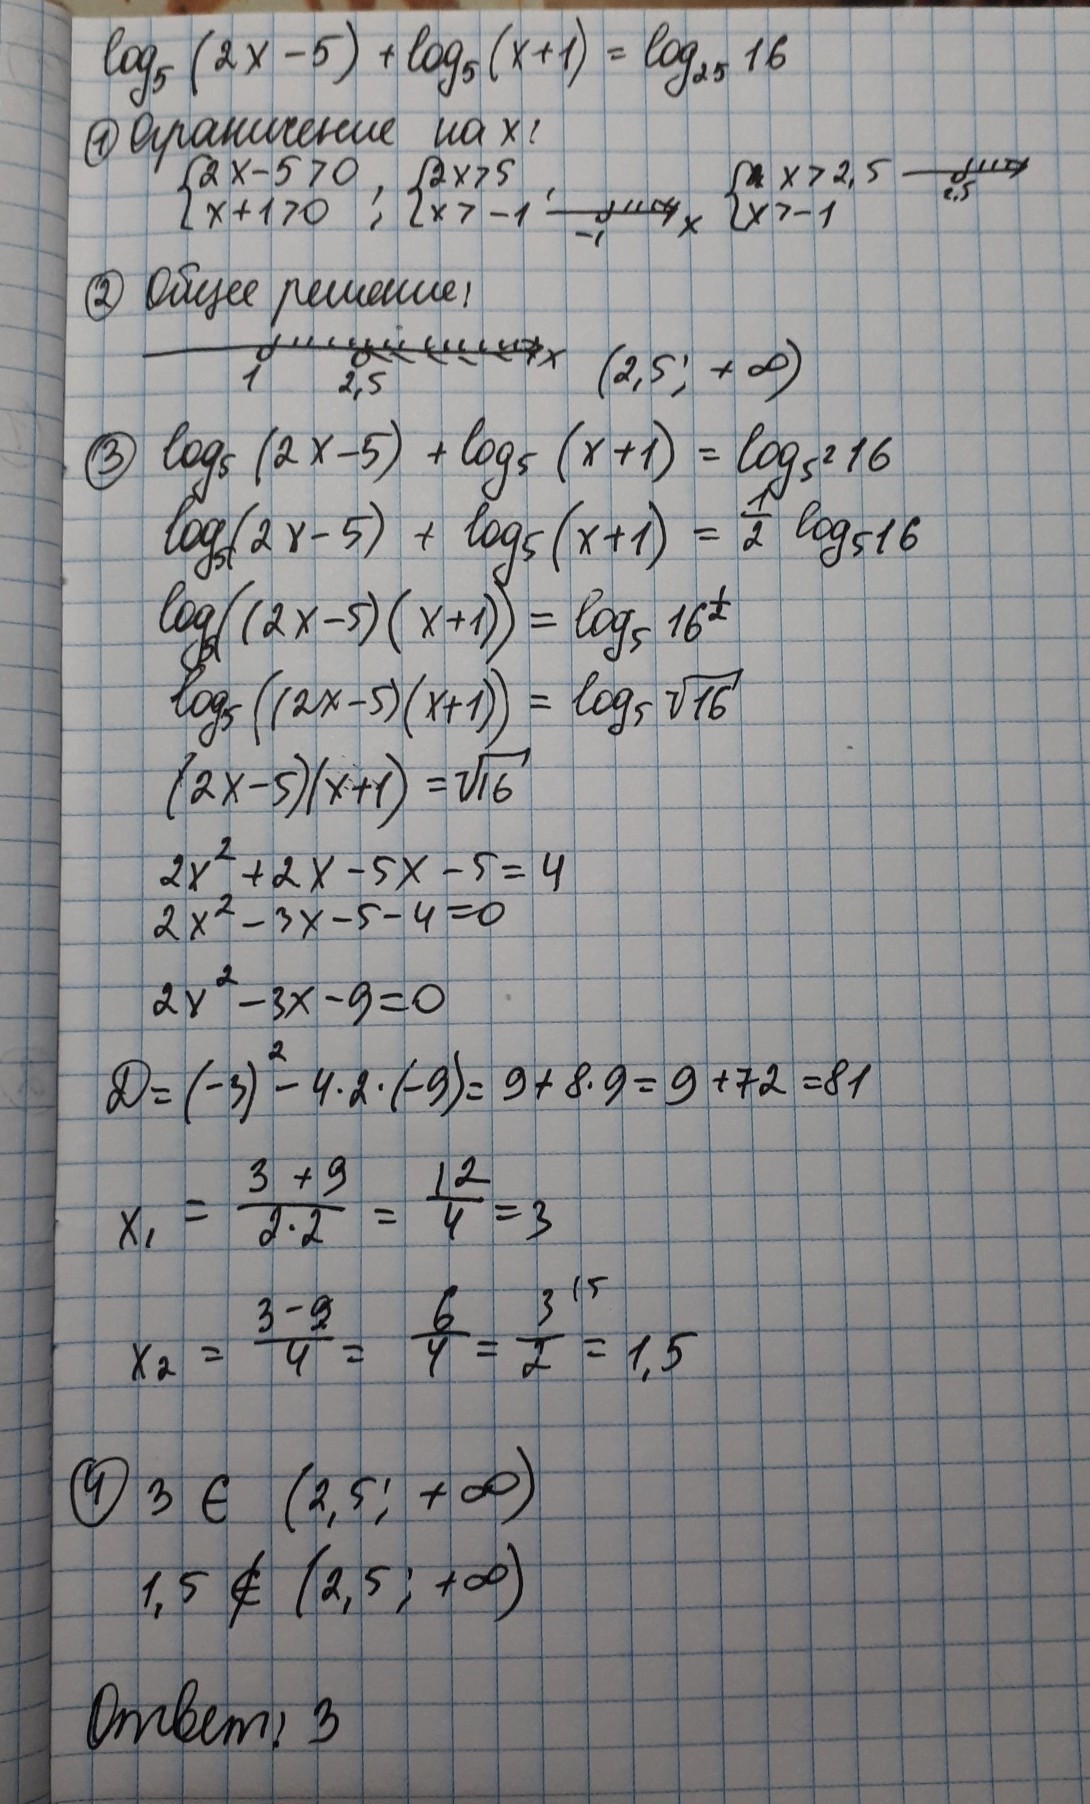 log₅(2x-5)+log₅(x+1)=log₂₅16
① Ограничение на x:
{2x-5>0, {2x>5, {x>2,5 2,5
{x+1>0; {x>-1 -1 x {x>-1
② Общее решение:
1 2,5 x (2,5; +∞)
③ log₅(2x-5)+log₅(x+1)=log₅²16
log₅(2x-5)+log₅(x+1)=1/2 log₅16
log₅((2x-5)(x+1))=log₅16^(1/2)
log₅((2x-5)(x+1))=log₅√16
(2x-5)(x+1)=√16
2x²+2x-5x-5=4
2x²-3x-5-4=0
2x²-3x-9=0
D=(-3)²-4·2·(-9)=9+8·9=9+72=81
x₁=(3+9)/(2·2)=12/4=3
x₂=(3-9)/4=6/4=3/2^(15)=1,5
④ 3 ∈ (2,5; +∞)
1,5 ∉ (2,5; +∞)
Ответ: 3